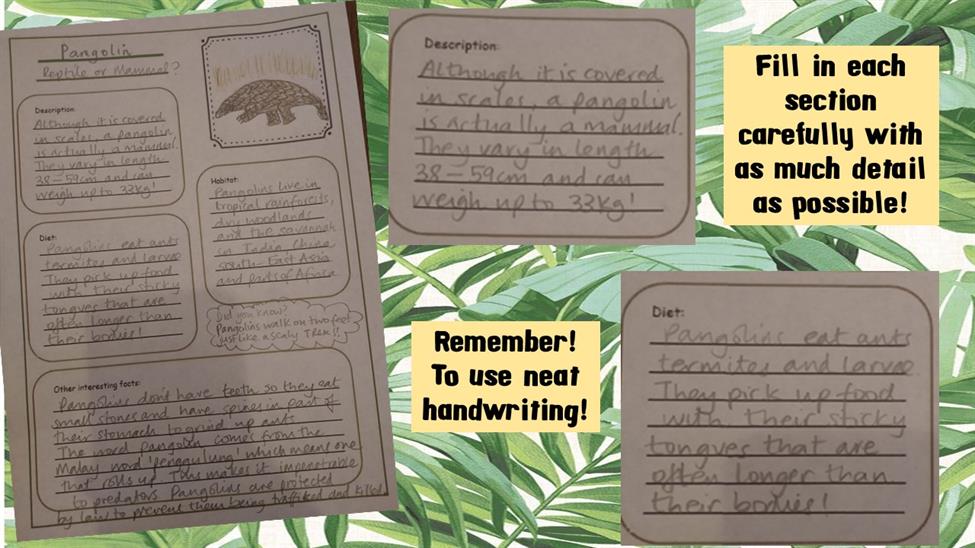 Pangolin
Reptile or Mammal?
Description:
Although it is covered
in scales, a pangolin
is actually a mammal.
They vary in length
38-59cm and can
weigh up to 33kg!
Habitat:
Pangolins live in
tropical rainforests,
dry woodlands
and the savannah
in India, China
south-East Asia
and parts of Africa
Diet:
Pangolins eat ants
termites and larvae
They pick up food
with their sticky
tongues that are
often longer than
their bodies!
Did you know?
Pangolins walk on two feet
just like a scaly T.Rex!!
Other interesting facts:
Pangolins don't have teeth so they eat
small stones and have spines in part of
their stomach to grind up ant
The word pangolin comes from the
Malay word 'penggulung' which means one
that rolls up. This makes it impenetrable
to predators. Pangolins are protected
by law to prevent them being trafficked and killed
Description:
Although it is covered
in scales, a pangolin
is actually a mammal.
They vary in length
38-59cm and can
weigh up to 33kg!
Fill in each
section
carefully with
as much detail
as possible!
Remember!
To use neat
handwriting!
Diet:
Pangolins eat ants
termites and larvae
They pick up food
with their sticky
tongues that are
often longer than
their bodies!